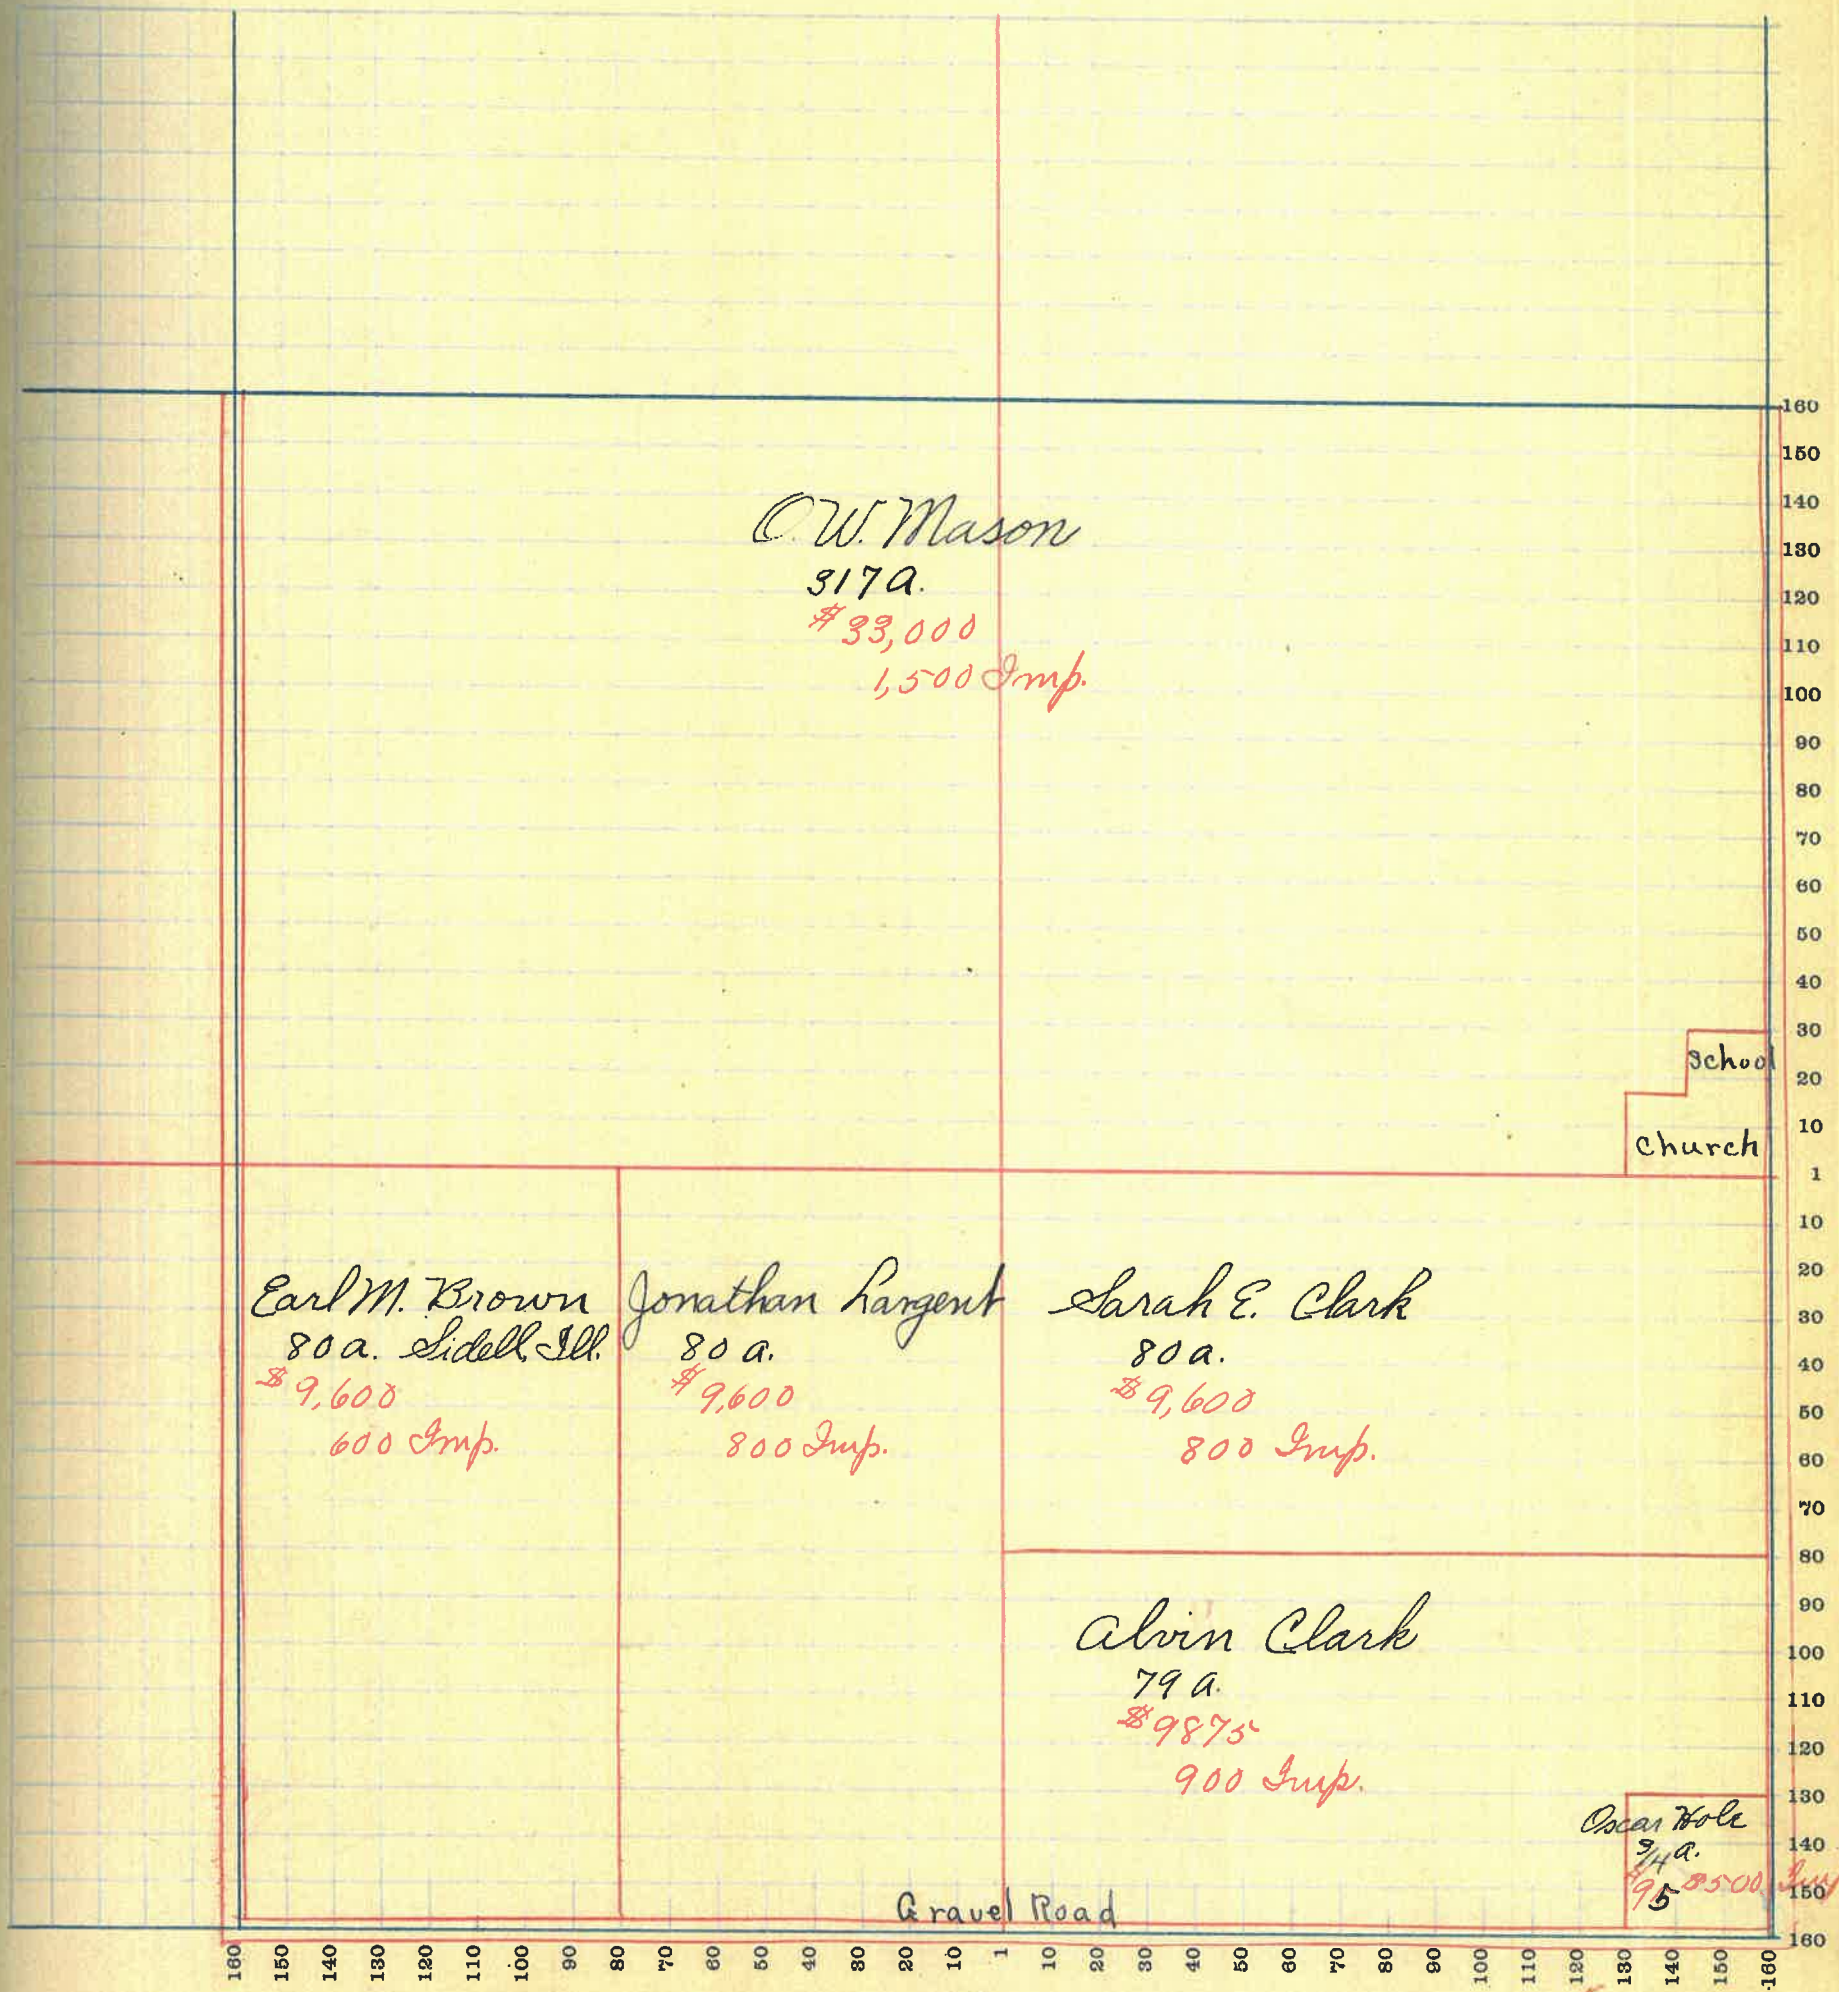 O.W. Mason
317 a.
$33,000
1,500 Imp.
School
Church
Earl M. Brown
80 a. Sidell, Ill.
$9,600
600 Imp.
Jonathan Largent
80 a.
$9,600
800 Imp.
Sarah E. Clark
80 a.
$9,600
800 Imp.
Alvin Clark
79 a.
$9875
900 Imp.
Oscar Hole
3/4 a.
$95 $500
Gravel Road
160
150
140
130
120
110
100
90
80
70
60
50
40
30
20
10
1
10
20
30
40
50
60
70
80
90
100
110
120
130
140
150
160
160 150 140 130 120 110 100 90 80 70 60 50 40 30 20 10 1 10 20 30 40 50 60 70 80 90 100 110 120 130 140 150 160